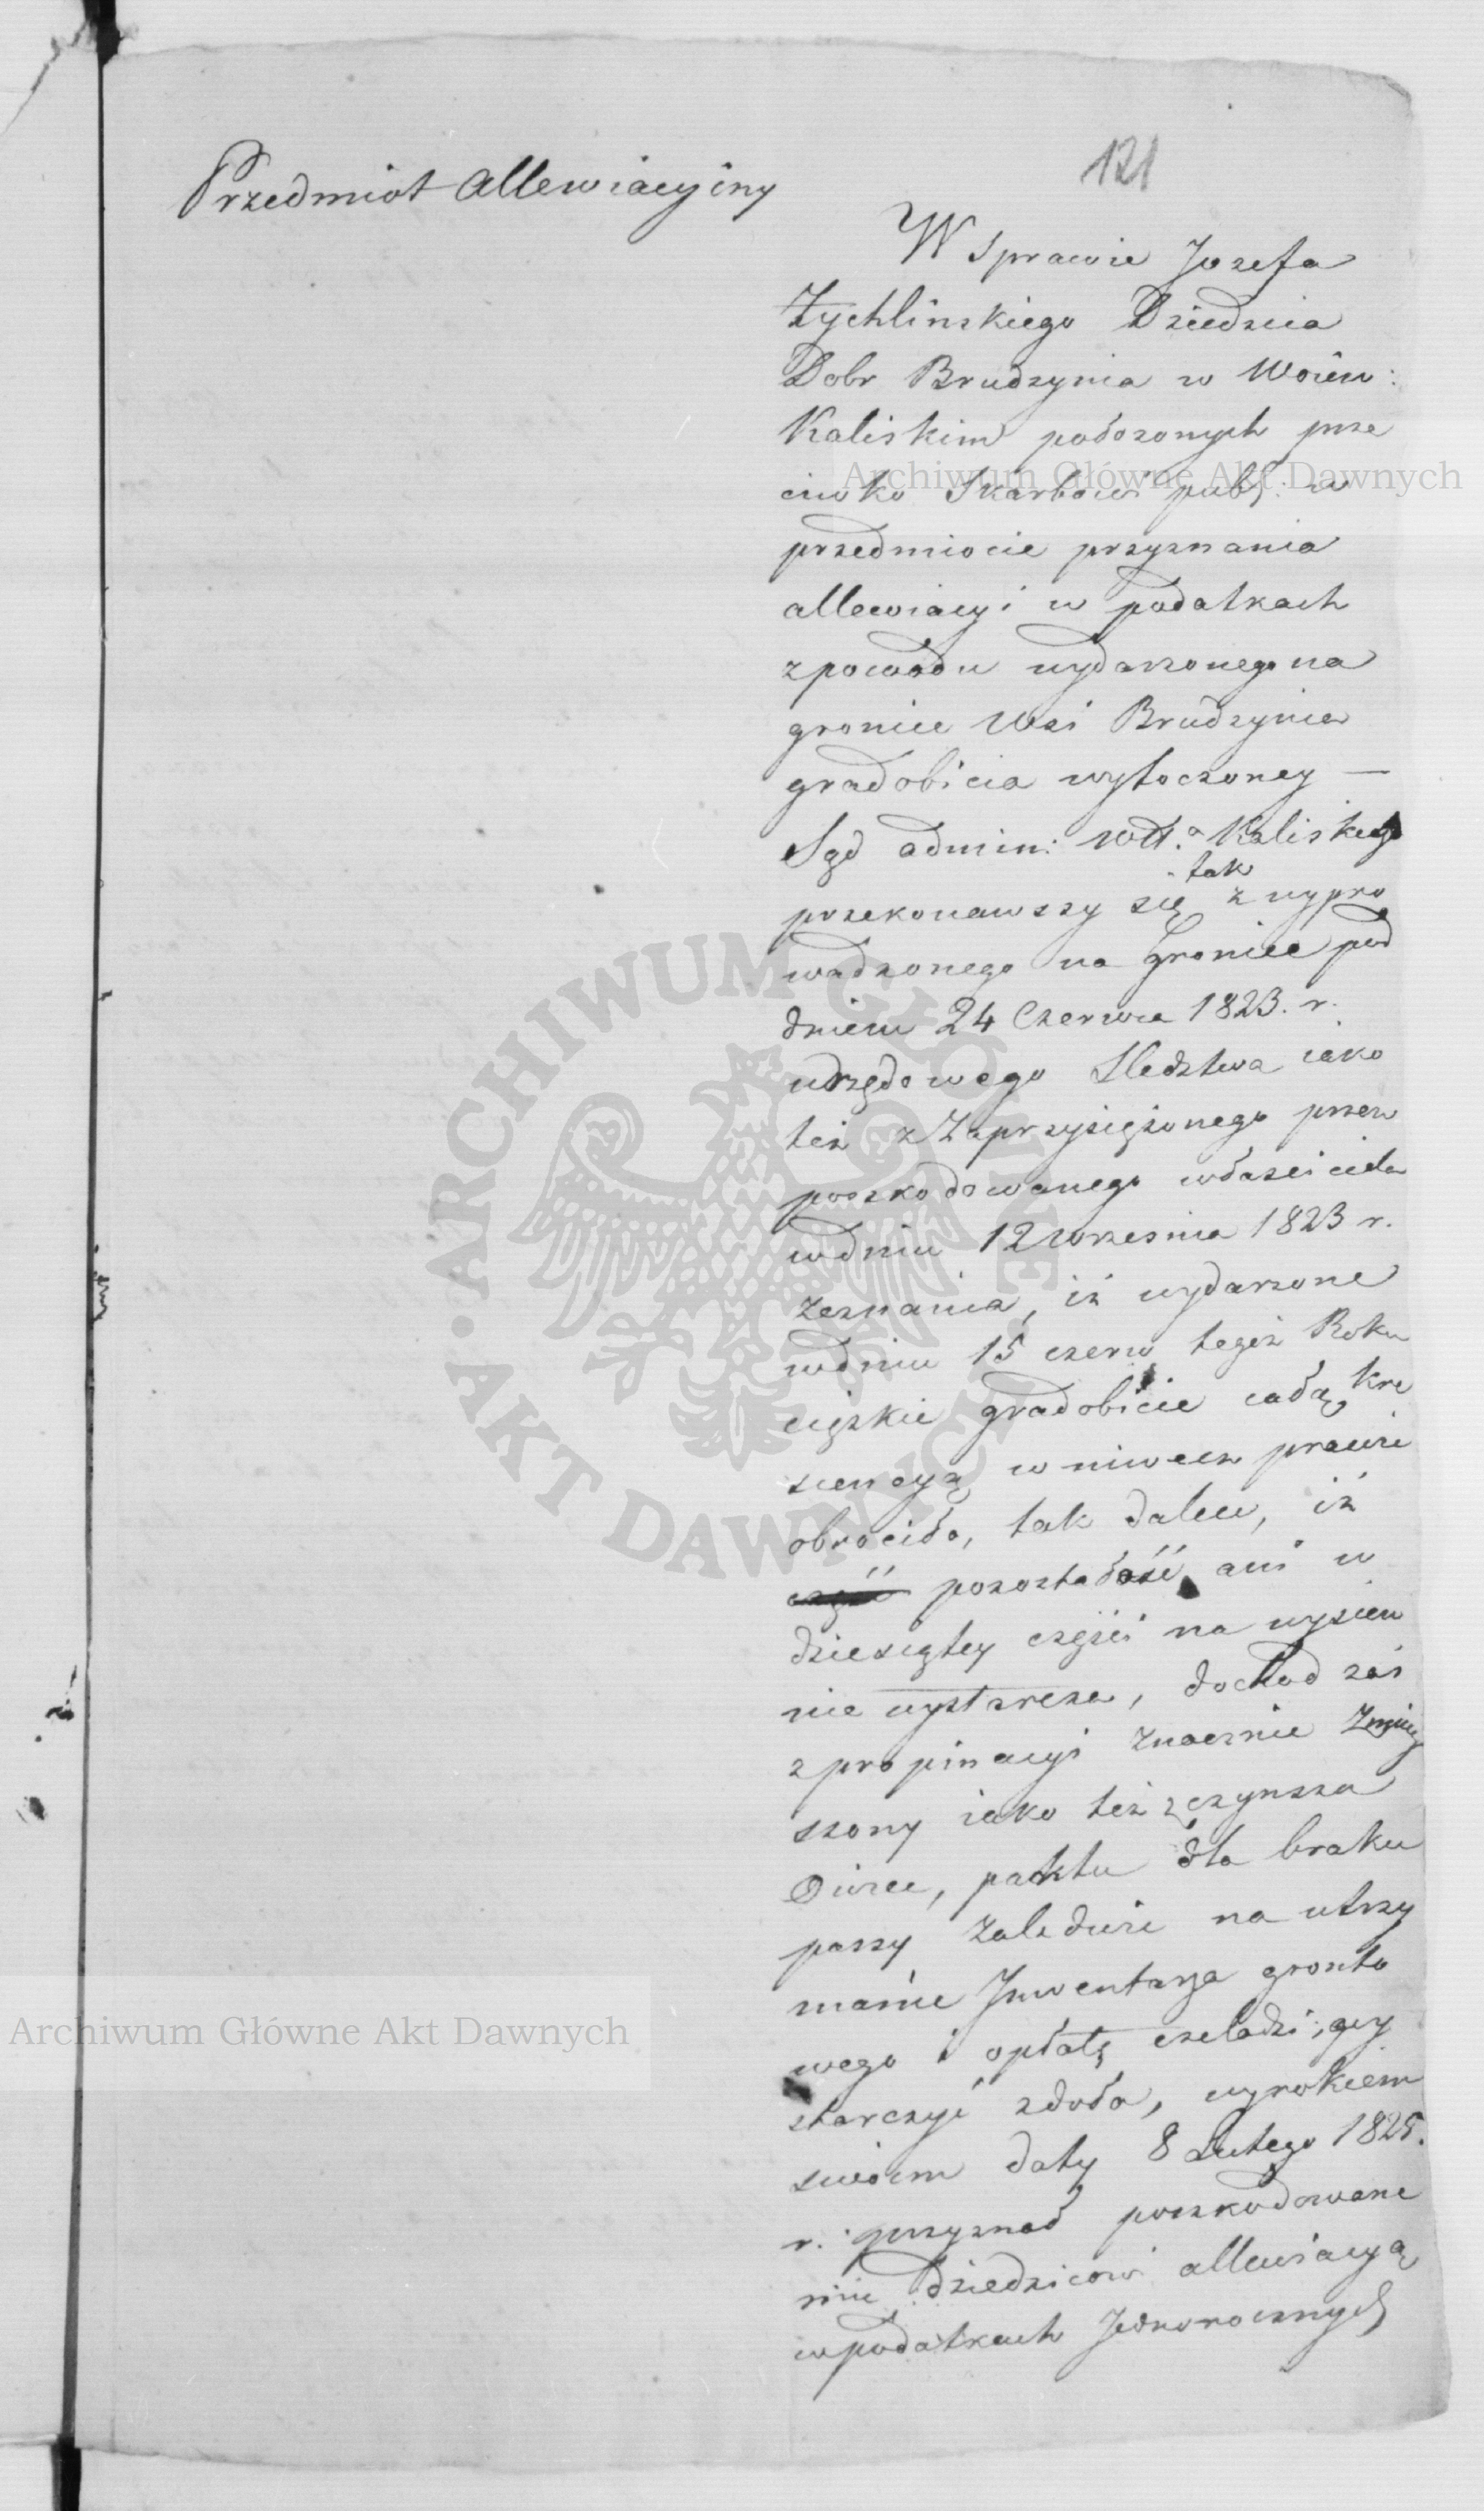 121
Przedmiot allewiacyiny
W sprawie Jozefa
Zychlinskiego Dziedzica
Dobr Brudzynia w Woiew:
Kaliskim położonych prze
ciwko Skarbowi publ: w
przedmiocie przyznania
allewiacyi w podatkach
z powodu wydarzonego na
groncie Wsi Brudzynia
gradobicia wytoczoney —
Sąd admin: Wdt.a Kaliskiego
tak
przekonawszy się z wypro
wadzonego na Groncie pod
dniem 24 Czerwca 1823. r.
urzędowego Sledztwa iako
też z Zaprzysiężonego przez
poszkodowanego własciciela
w dniu 12 wrzesnia 1823 r.
Zeznania, iż wydarzone
w dniu 15 czerw tegoż Roku
cięzkie gradobicie całą kre
scencyą w niwecz prawie
obrociło, tak dalece, iż
pozostałość ani w
dziesiątey części na wysiew
nie wystarcza, dochod zaś
z propinacyi znacznie Zmniey
szony iako też z czynszu
Owiec, paktu dla braku
paszy Zaledwie na utrzy
manie Jnwentarza gronto
wego i opłatę czeladzi, wy
starczyć zdoła, wyrokiem
swoiem daty 8 Lutego 1825.
r. przyznał poszkodowane
mu dziedzicowi allewiacyą
w podatkach Jednorocznych
Archiwum Główne Akt Dawnych
Archiwum Główne Akt Dawnych
ARCHIWUM GŁÓWNE • AKT DAWNYCH •